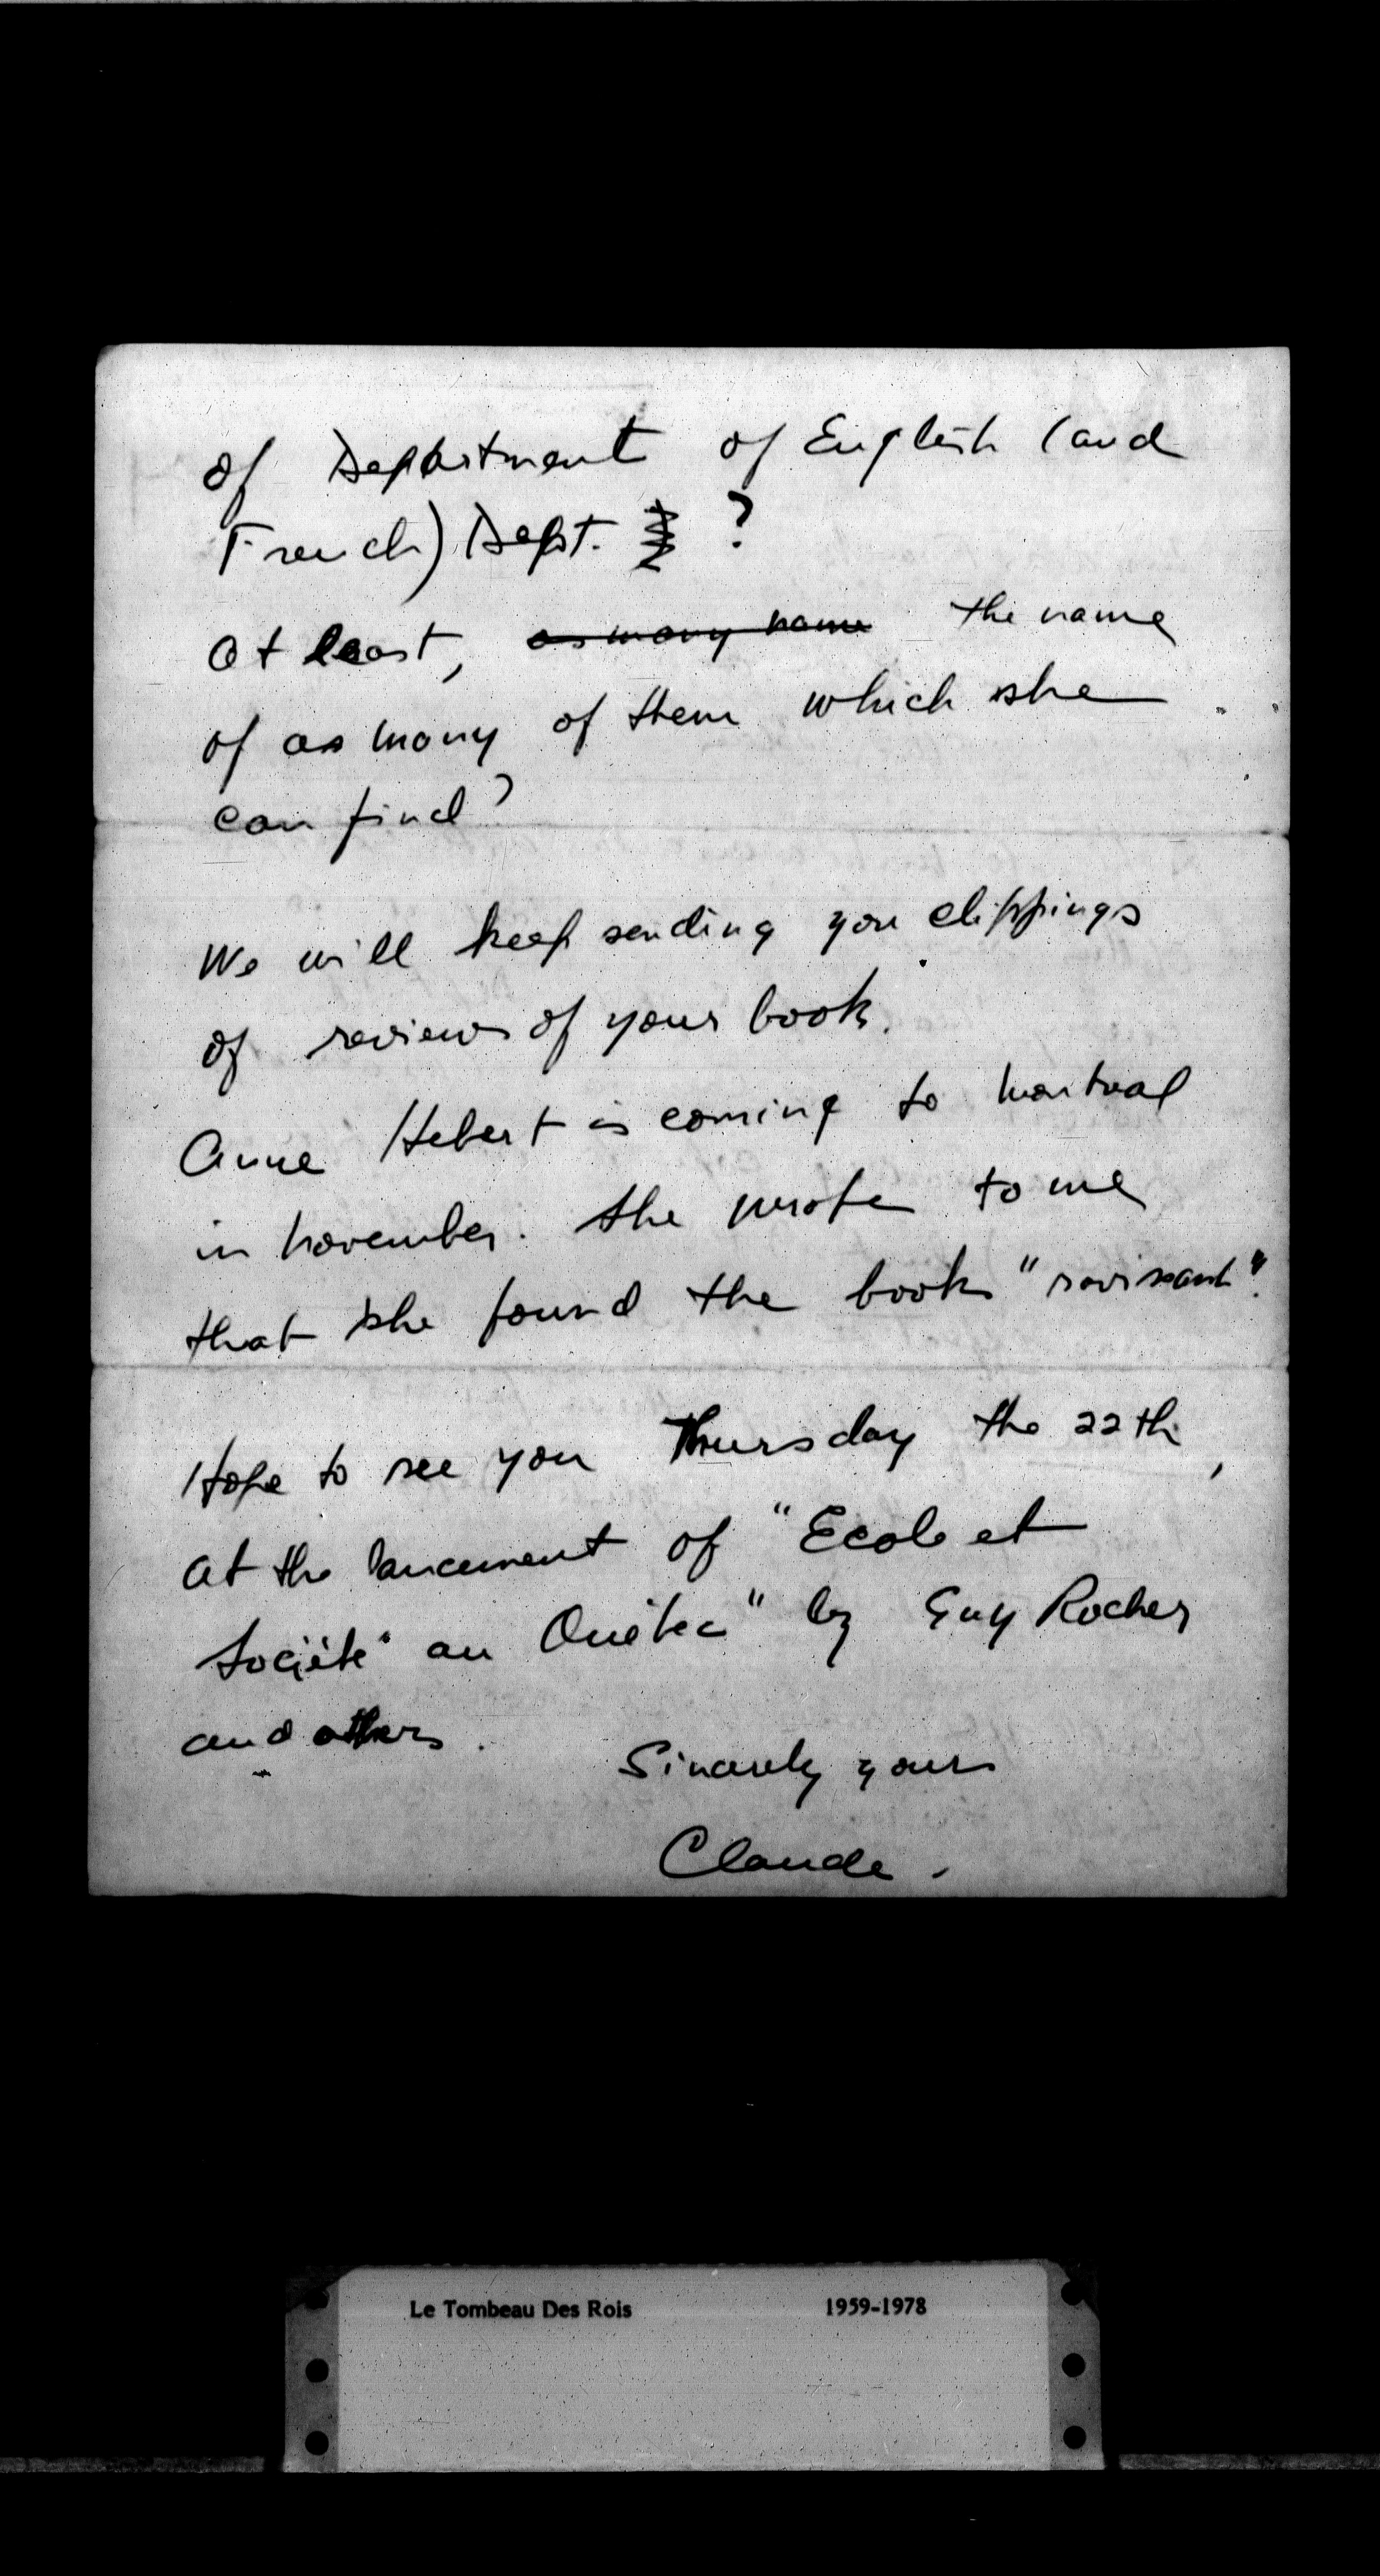 of Department of English (and
French) Dept. ?
At least, as many name the name
of as many of them which she
can find?
We will keep sending you clippings
of reviews of your book.
Anne Hebert is coming to Montreal
in November. She wrote to me
that she found the book "ravissant".
Hope to see you Thursday the 22th,
at the lancement of "Ecole et
Société au Québec" by Guy Rocher
and others.
Sincerely yours
Claude.
Le Tombeau Des Rois 1959-1978